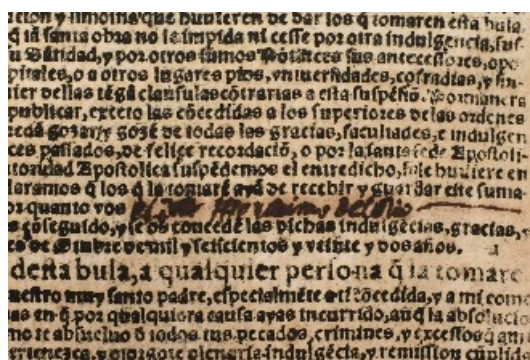 cion y limosna que huuieren de dar los q̃ tomaren esta bula
q̃ tã santa obra no se impida ni cesse por otra indulgencia, sus
u Sãtidad, y por otros sumos Põtifices sus antecessores,
pitales, o a otros lugares pios, vniuersidades, cofradias, y
uier dellas tẽgã clausulas cõtrarias a esta suspẽsiõ. Por manera
publicar, exceto las cõcedidas a los superiores de las ordenes
uedã gozar, y gozẽ de todas las gracias, facultades, e indulgen
ces passados, de felice recordaciõ, o por la santa sede Apostoli
toridad Apostolica suspẽdemos el entredicho, si le huuiere en
laramos q̃ los q̃ la tomarẽ ayã de recebir y guardar este suma
or quanto vos
s cõseguido, y se os concedẽ las dichas indulgẽcias, gracias,
es de Otubre de mil y seiscientos y veinte y dos años.
desta bula, a qualquier persona q̃ la tomare
uestro muy santo padre, especialmẽte a ti cõcedida, y a mi come
as en q̃ por qualquiera causa ayas incurrido, aũq̃ la absolucio
mo te absueluo d̃ todos tus pecados, crimines, y excessos q̃
ertenezca, y otorgote plenaria indulgẽcia, y remission